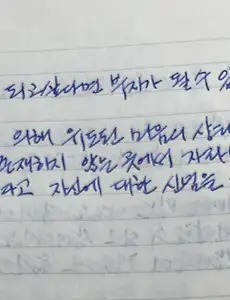 되리살다면 부자가 될 수 있
의해 위도된 마음의 상태
존재하지 않는 곳에서 자라
라고 자신에 대한 신념을